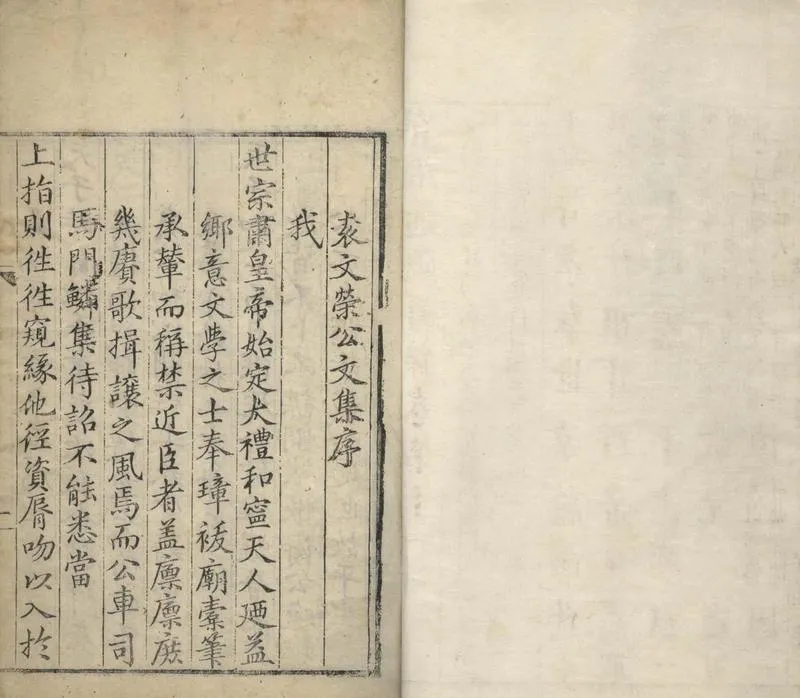 袁文榮公文集序
我
世宗肅皇帝始定大禮和寍天人廼益
鄉意文學之士奉璋祓廟橐筆
承輦而稱禁近臣者盖廩廩庶
幾賡歌揖讓之風焉而公車司
馬門鱗集待詔不能悉當
上指則徃徃窺緣他徑資脣吻以入扵